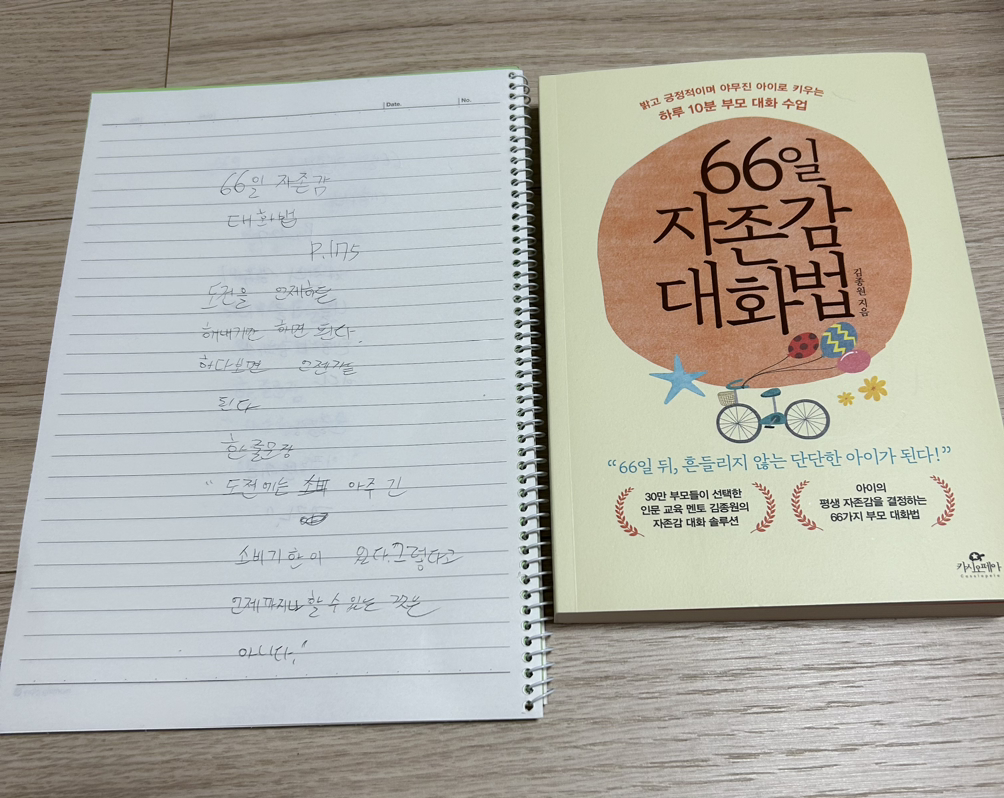 Date.
No.
66일 자존감
대화법
P.175
도전을 언제하든
해내기만 하면 된다.
하다보면
된다
한줄문장
"도전에는 아주 긴
소비기한이 오다.그렇다고
언제까지나 할 수 있는 것은
아니다."
밝고 긍정적이며 야무진 아이로 키우는
하루 10분 부모 대화 수업
66일
자존감
대화법
김종원 지음
"66일 뒤, 흔들리지 않는 단단한 아이가 된다!"
30만 부모들이 선택한
인문 교육 멘토 김종원의
자존감 대화 솔루션
아이의
평생 자존감을 결정하는
66가지 부모 대화법
카시오페아
Cassiopeia